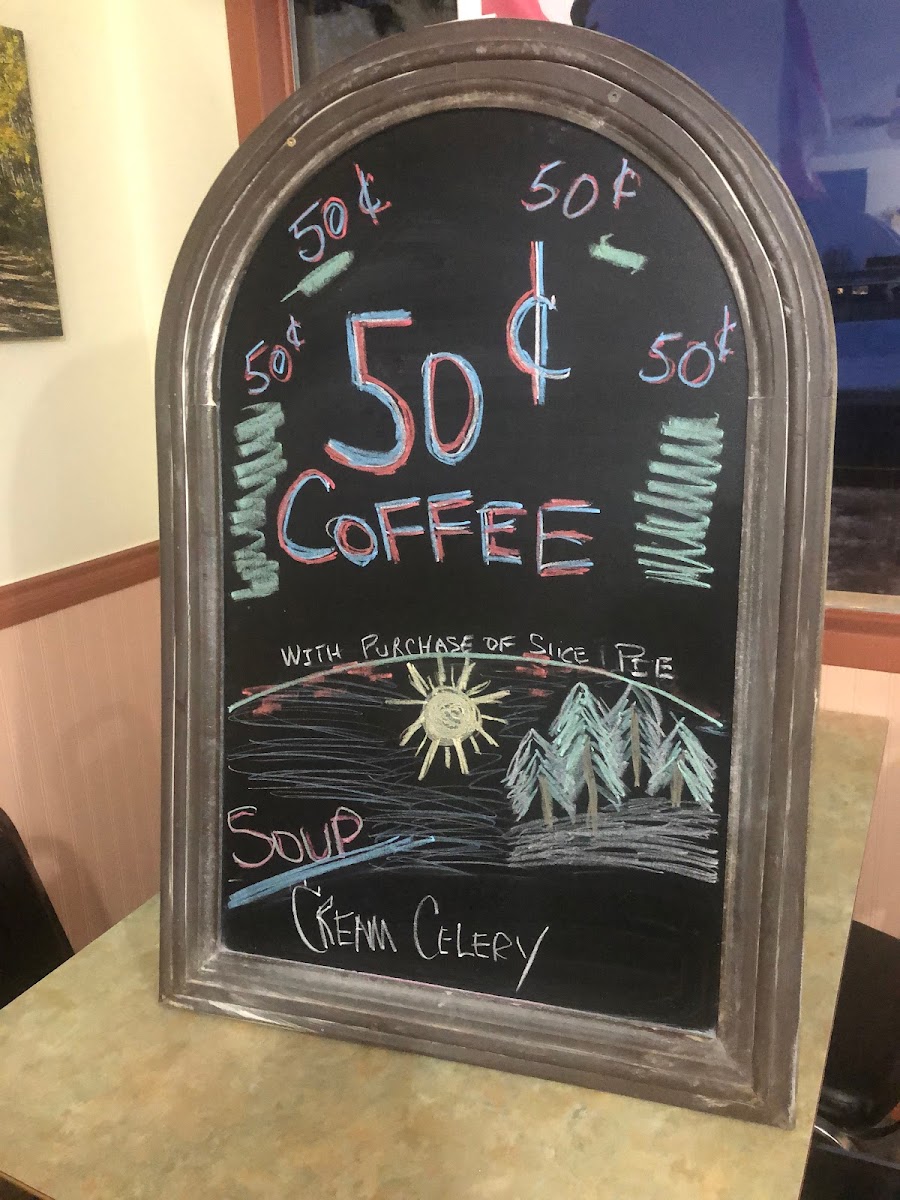 50¢ 50¢
50¢ 50¢
50¢
COFFEE
WITH PURCHASE OF SLICE PIE
SOUP
CREAM CELERY